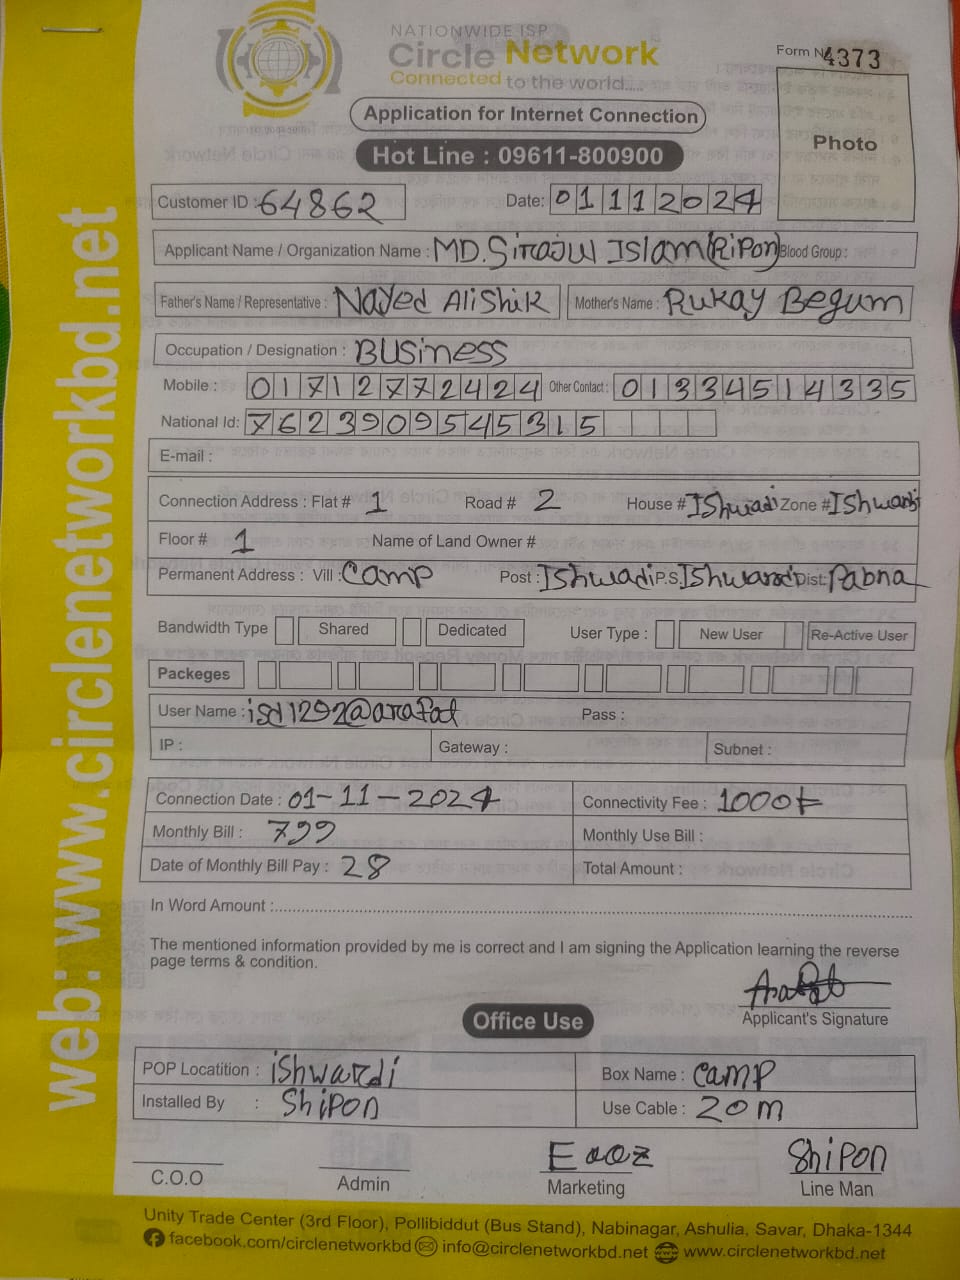 NATIONWIDE ISP
Circle Network
Connected to the world.....
Form No 4373
Application for Internet Connection
Photo
Hot Line : 09611-800900
Customer ID : 64862 Date: 01112024
Applicant Name / Organization Name : MD. Sirajul Islam (Ripon) Blood Group :
Father's Name / Representative : Nayed Ali Shik Mother's Name : Rukay Begum
Occupation / Designation : Business
Mobile : 01712772424 Other Contact : 01334514335
National Id: 7623909545315
E-mail :
Connection Address : Flat # 1 Road # 2 House # IShwadi Zone # IShwardi
Floor # 1 Name of Land Owner #
Permanent Address : Vill : Camp Post : IShwadi P.S. IShwardi Dist: Pabna
Bandwidth Type Shared Dedicated User Type : New User Re-Active User
Packeges
User Name : isd1292@arafat Pass :
IP : Gateway : Subnet :
Connection Date : 01-11-2024 Connectivity Fee : 1000t
Monthly Bill : 799 Monthly Use Bill :
Date of Monthly Bill Pay : 28 Total Amount :
In Word Amount :
The mentioned information provided by me is correct and I am signing the Application learning the reverse
page terms & condition.
Arafat
Applicant's Signature
Office Use
POP Locatition : iShwardi Box Name : Camp
Installed By : Shipon Use Cable : 20m
Shipon
C.O.O Admin Marketing Line Man
Unity Trade Center (3rd Floor), Pollibiddut (Bus Stand), Nabinagar, Ashulia, Savar, Dhaka-1344
facebook.com/circlenetworkbd info@circlenetworkbd.net www.circlenetworkbd.net
web: www.circlenetworkbd.net